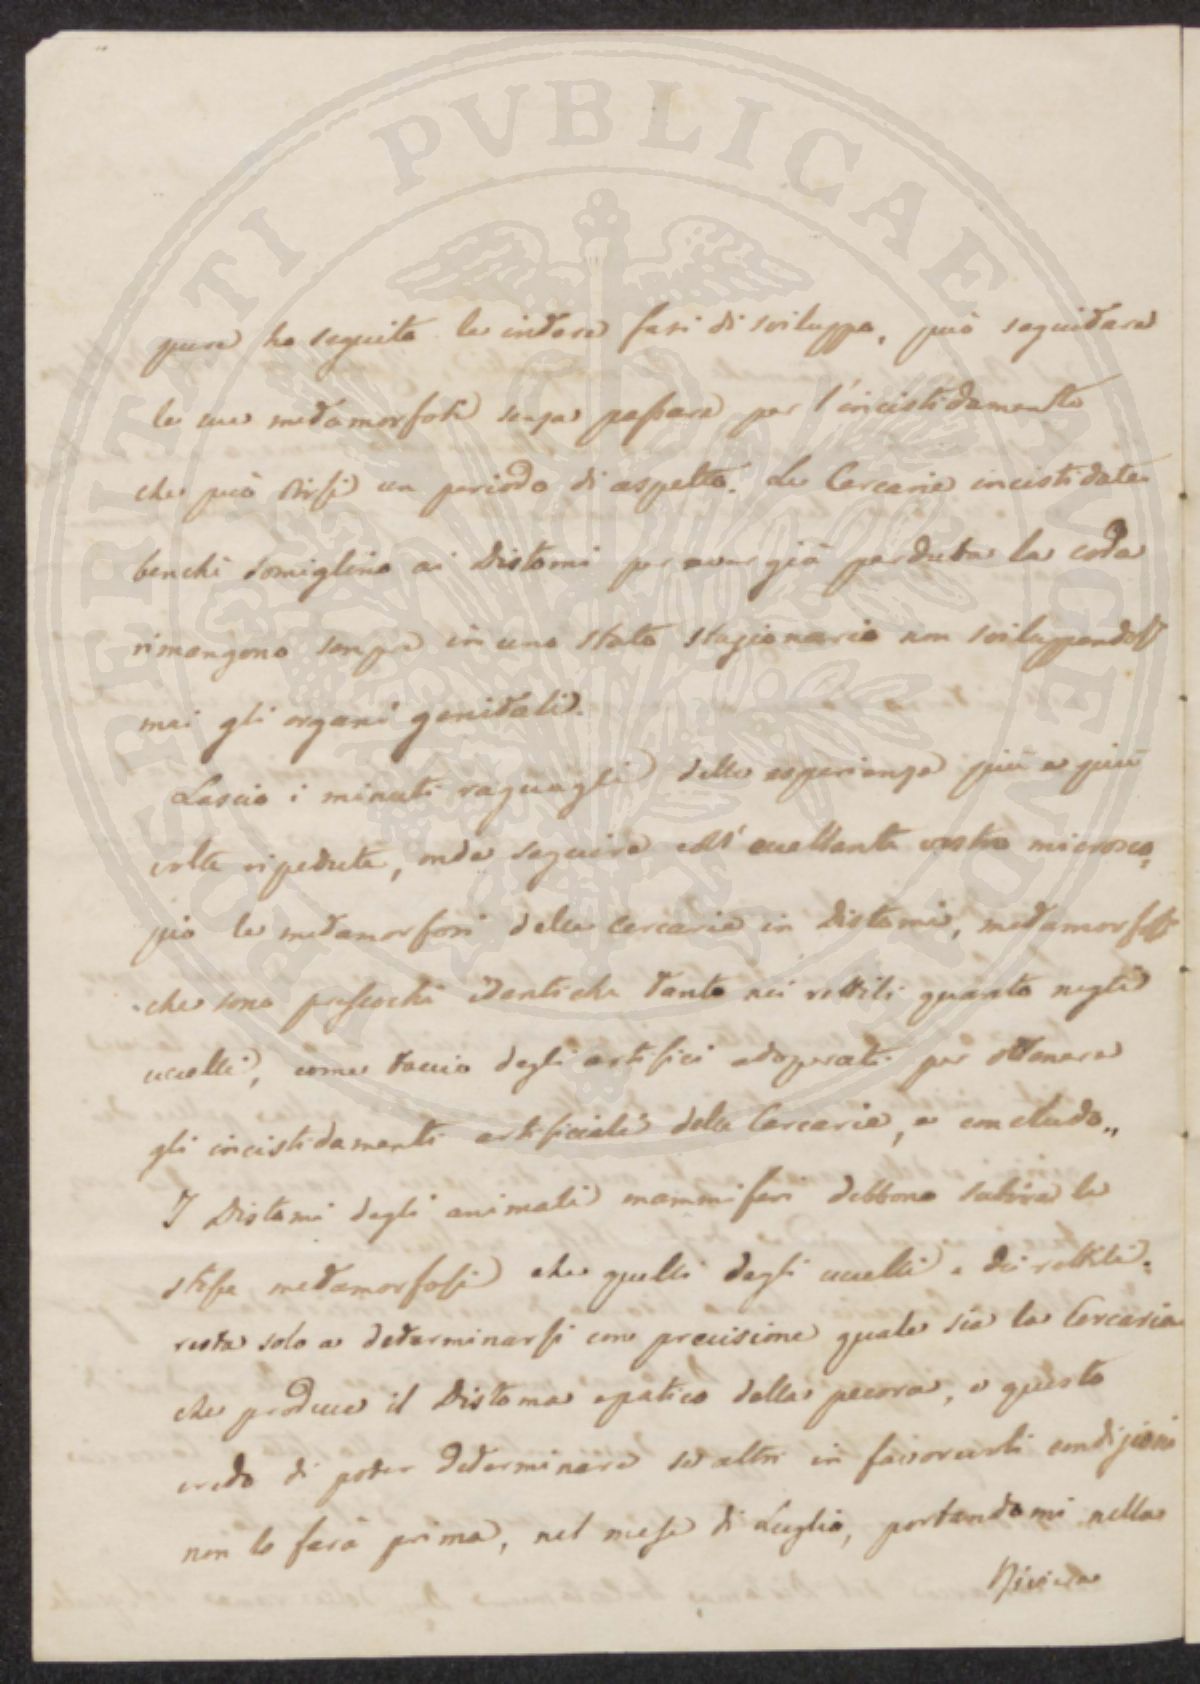 PROSPERITATI PVBLICAE AVGENDAE
pure ha seguito le intere fasi di sviluppo, può seguitare
le sue metamorfosi senza passare per l'incistidamento
che può dirsi un periodo di aspetto. Le Cercarie incistidate
benchè somiglino ai Distomi per aver già perduta la coda
rimangono sempre in uno stato stazionario non sviluppandosi
mai gli organi genitali.
Lascio i minuti ragguagli delle esperienze più e più
volte ripetute, onde seguire coll'eccellente vostro microsco,
pio le metamorfosi delle Cercarie in Distomi, metamorfosi
che sono pressochè identiche tanto nei rettili quanto negli
uccelli, come taccio degli artifici adoperati per ottenere
gli incistidamenti artificiali delle Cercarie, e concludo„
I Distomi degli animali mammiferi debbono subire le
stesse metamorfosi che quelli degli uccelli e dei rettili:
resta solo a determinarsi con precisione quale sia la Cercaria
che produce il Distoma epatico della pecora, e questo
credo di poter determinare se altri in favorevoli condizioni
non lo farà prima, nel mese di Luglio, portandomi nella